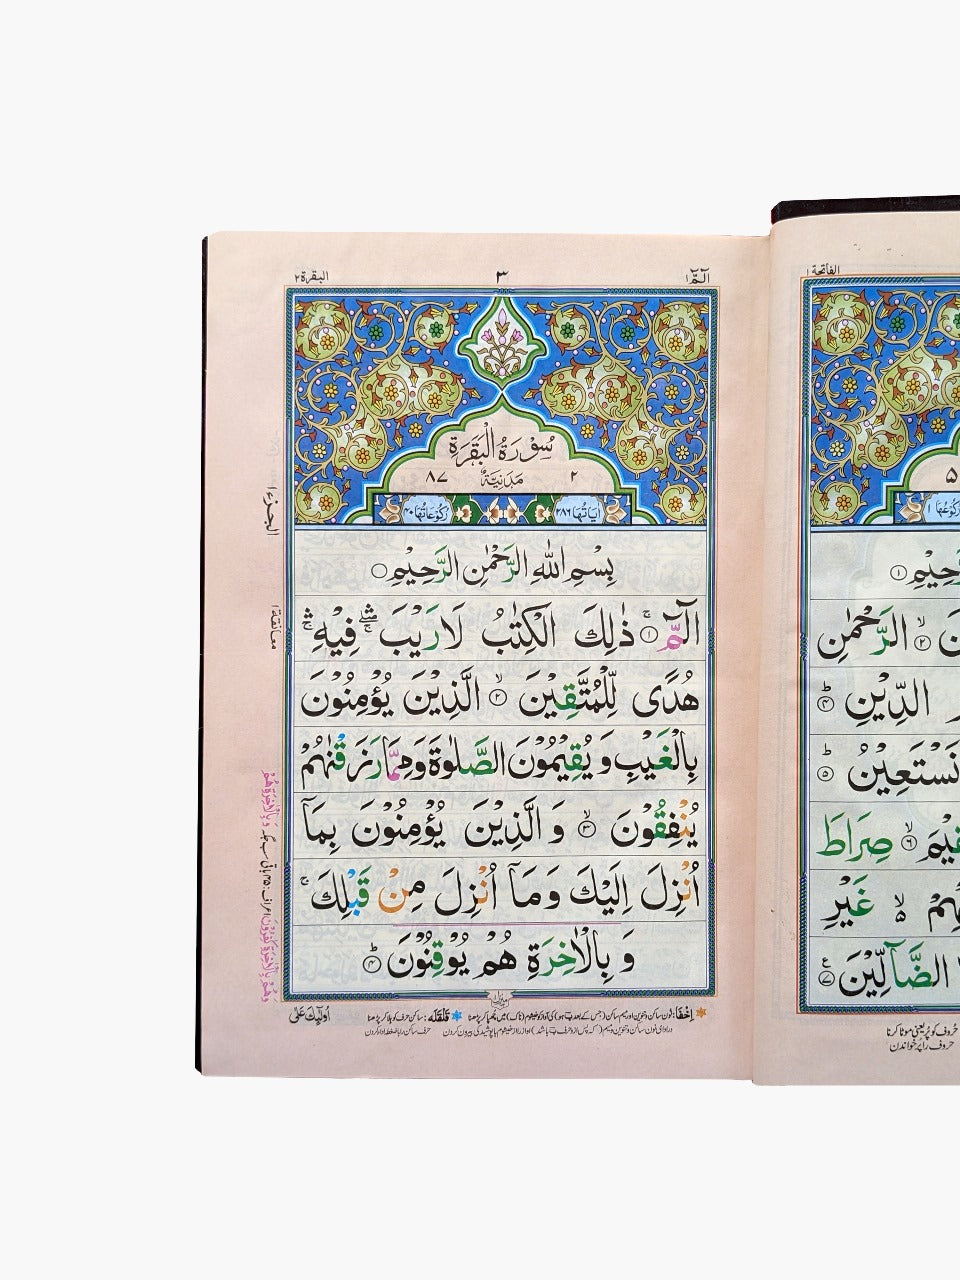 الٓمّٓ ١
٣
البقرة ٢
سُوْرَةُ الْبَقَرَةِ
٢ مَدَنِيَّةٌ ٨٧
اٰيَاتُهَا ٢٨٦
رُكُوْعَاتُهَا ٤٠
بِسْمِ اللّٰهِ الرَّحْمٰنِ الرَّحِيْمِ
الٓمّٓ ۚ ١ ذٰلِكَ الْكِتٰبُ لَا رَيْبَ ۛ فِيْهِ ۛ
هُدًى لِّلْمُتَّقِيْنَ ۙ ٢ الَّذِيْنَ يُؤْمِنُوْنَ
بِالْغَيْبِ وَيُقِيْمُوْنَ الصَّلٰوةَ وَمِمَّا رَزَقْنٰهُمْ
يُنْفِقُوْنَ ۙ ٣ وَالَّذِيْنَ يُؤْمِنُوْنَ بِمَآ
اُنْزِلَ اِلَيْكَ وَمَآ اُنْزِلَ مِنْ قَبْلِكَ ۚ
وَبِالْاٰخِرَةِ هُمْ يُوْقِنُوْنَ ؕ ٤
اُولٰٓئِكَ عَلٰى
الجزء ١
معانقة ١
الفاتحة ١
٥
رُكُوْعُهَا ١
١
الرَّحْمٰنِ
٢
الدِّيْنِ ؕ ٤
نَسْتَعِيْنُ ؕ ٥
٦ صِرَاطَ
غَيْرِ
الضَّآلِّيْنَ ٧
حروف کو پُر یعنی موٹا کرنا
حروف را پُر خواندن